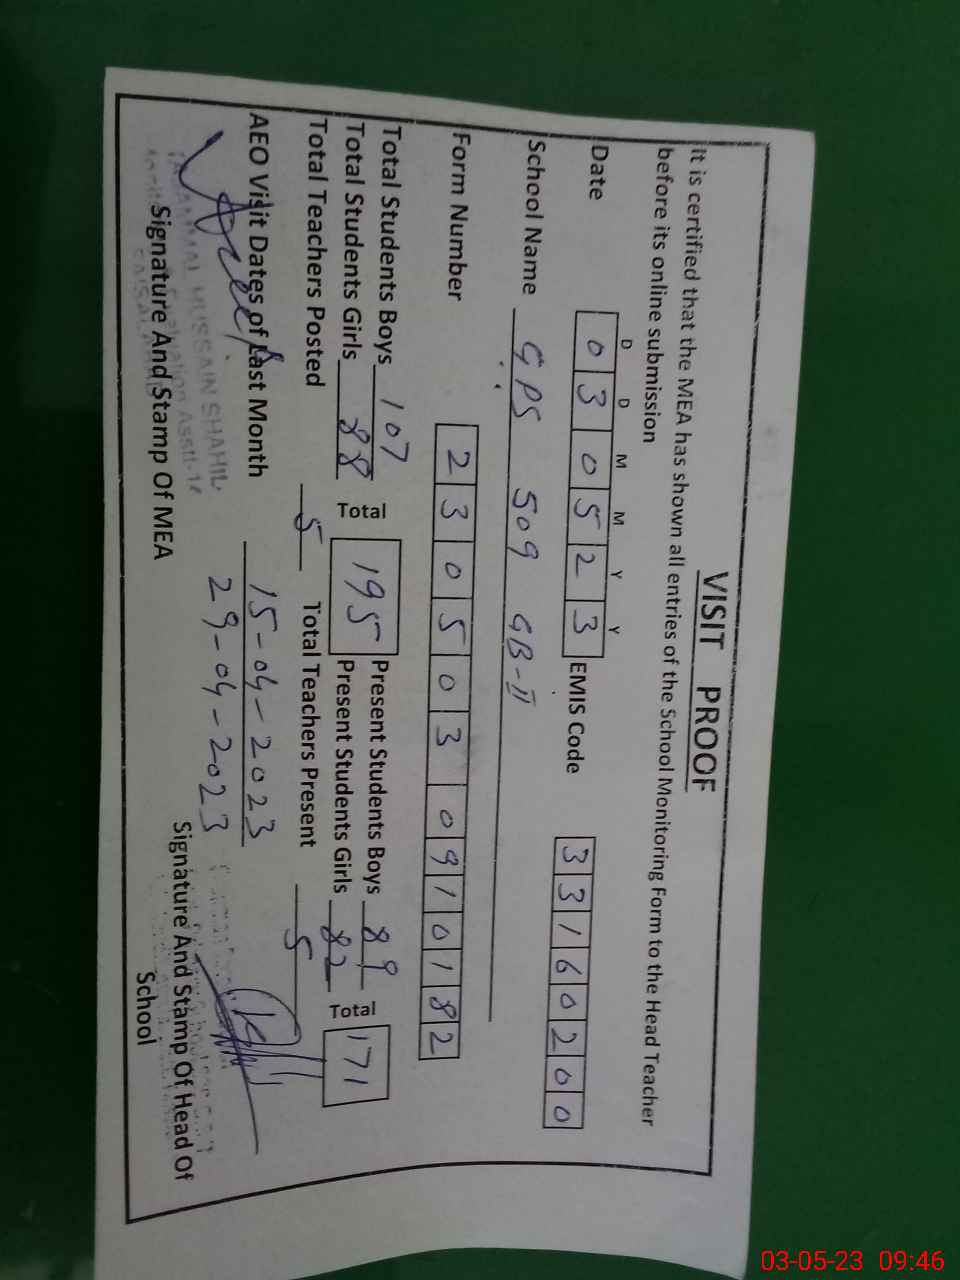 VISIT PROOF
It is certified that the MEA has shown all entries of the School Monitoring Form to the Head Teacher
before its online submission
D D M M Y Y
Date 0 3 0 5 2 3 EMIS Code 3 3 1 6 0 2 0 0
School Name GPS 509 GB-II
Form Number 2 3 0 5 0 3 0 9 1 0 1 8 2
Total Students Boys 107 Total 195 Present Students Boys 89 Total 171
Total Students Girls 88 Present Students Girls 82
Total Teachers Posted 5 Total Teachers Present 5
AEO Visit Dates of Last Month 15-04-2023
29-04-2023
HUSSAIN SHAHI
Signature And Stamp Of MEA
Signature And Stamp Of Head Of
School
03-05-23 09:46